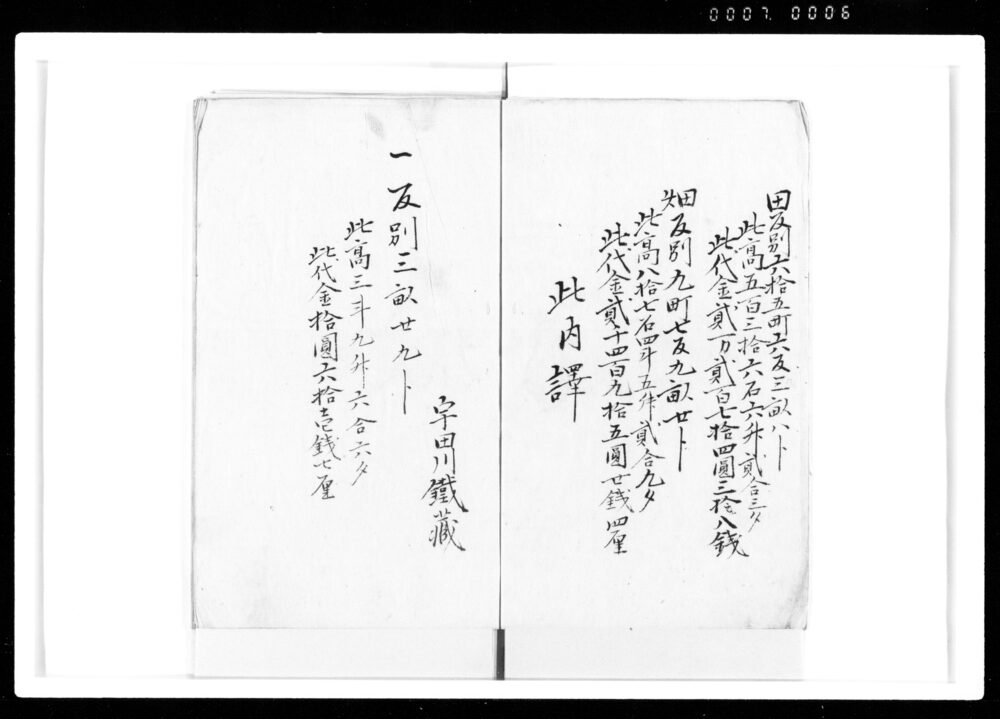 0007 0006
田反別六拾五町六反三畝八卜
此高五百三拾六石六升貳合三夕
此代金貳万貳百七拾四圓三拾八銭
畑反別九町七反九畝廿卜
此高八拾七石四斗五升貳合九夕
此代金貳千四百九拾五圓廿銭四厘
此内譯
宇田川鐵藏
一反別三畝廿九卜
此高三斗九升六合六夕
此代金拾圓六拾壱銭七厘